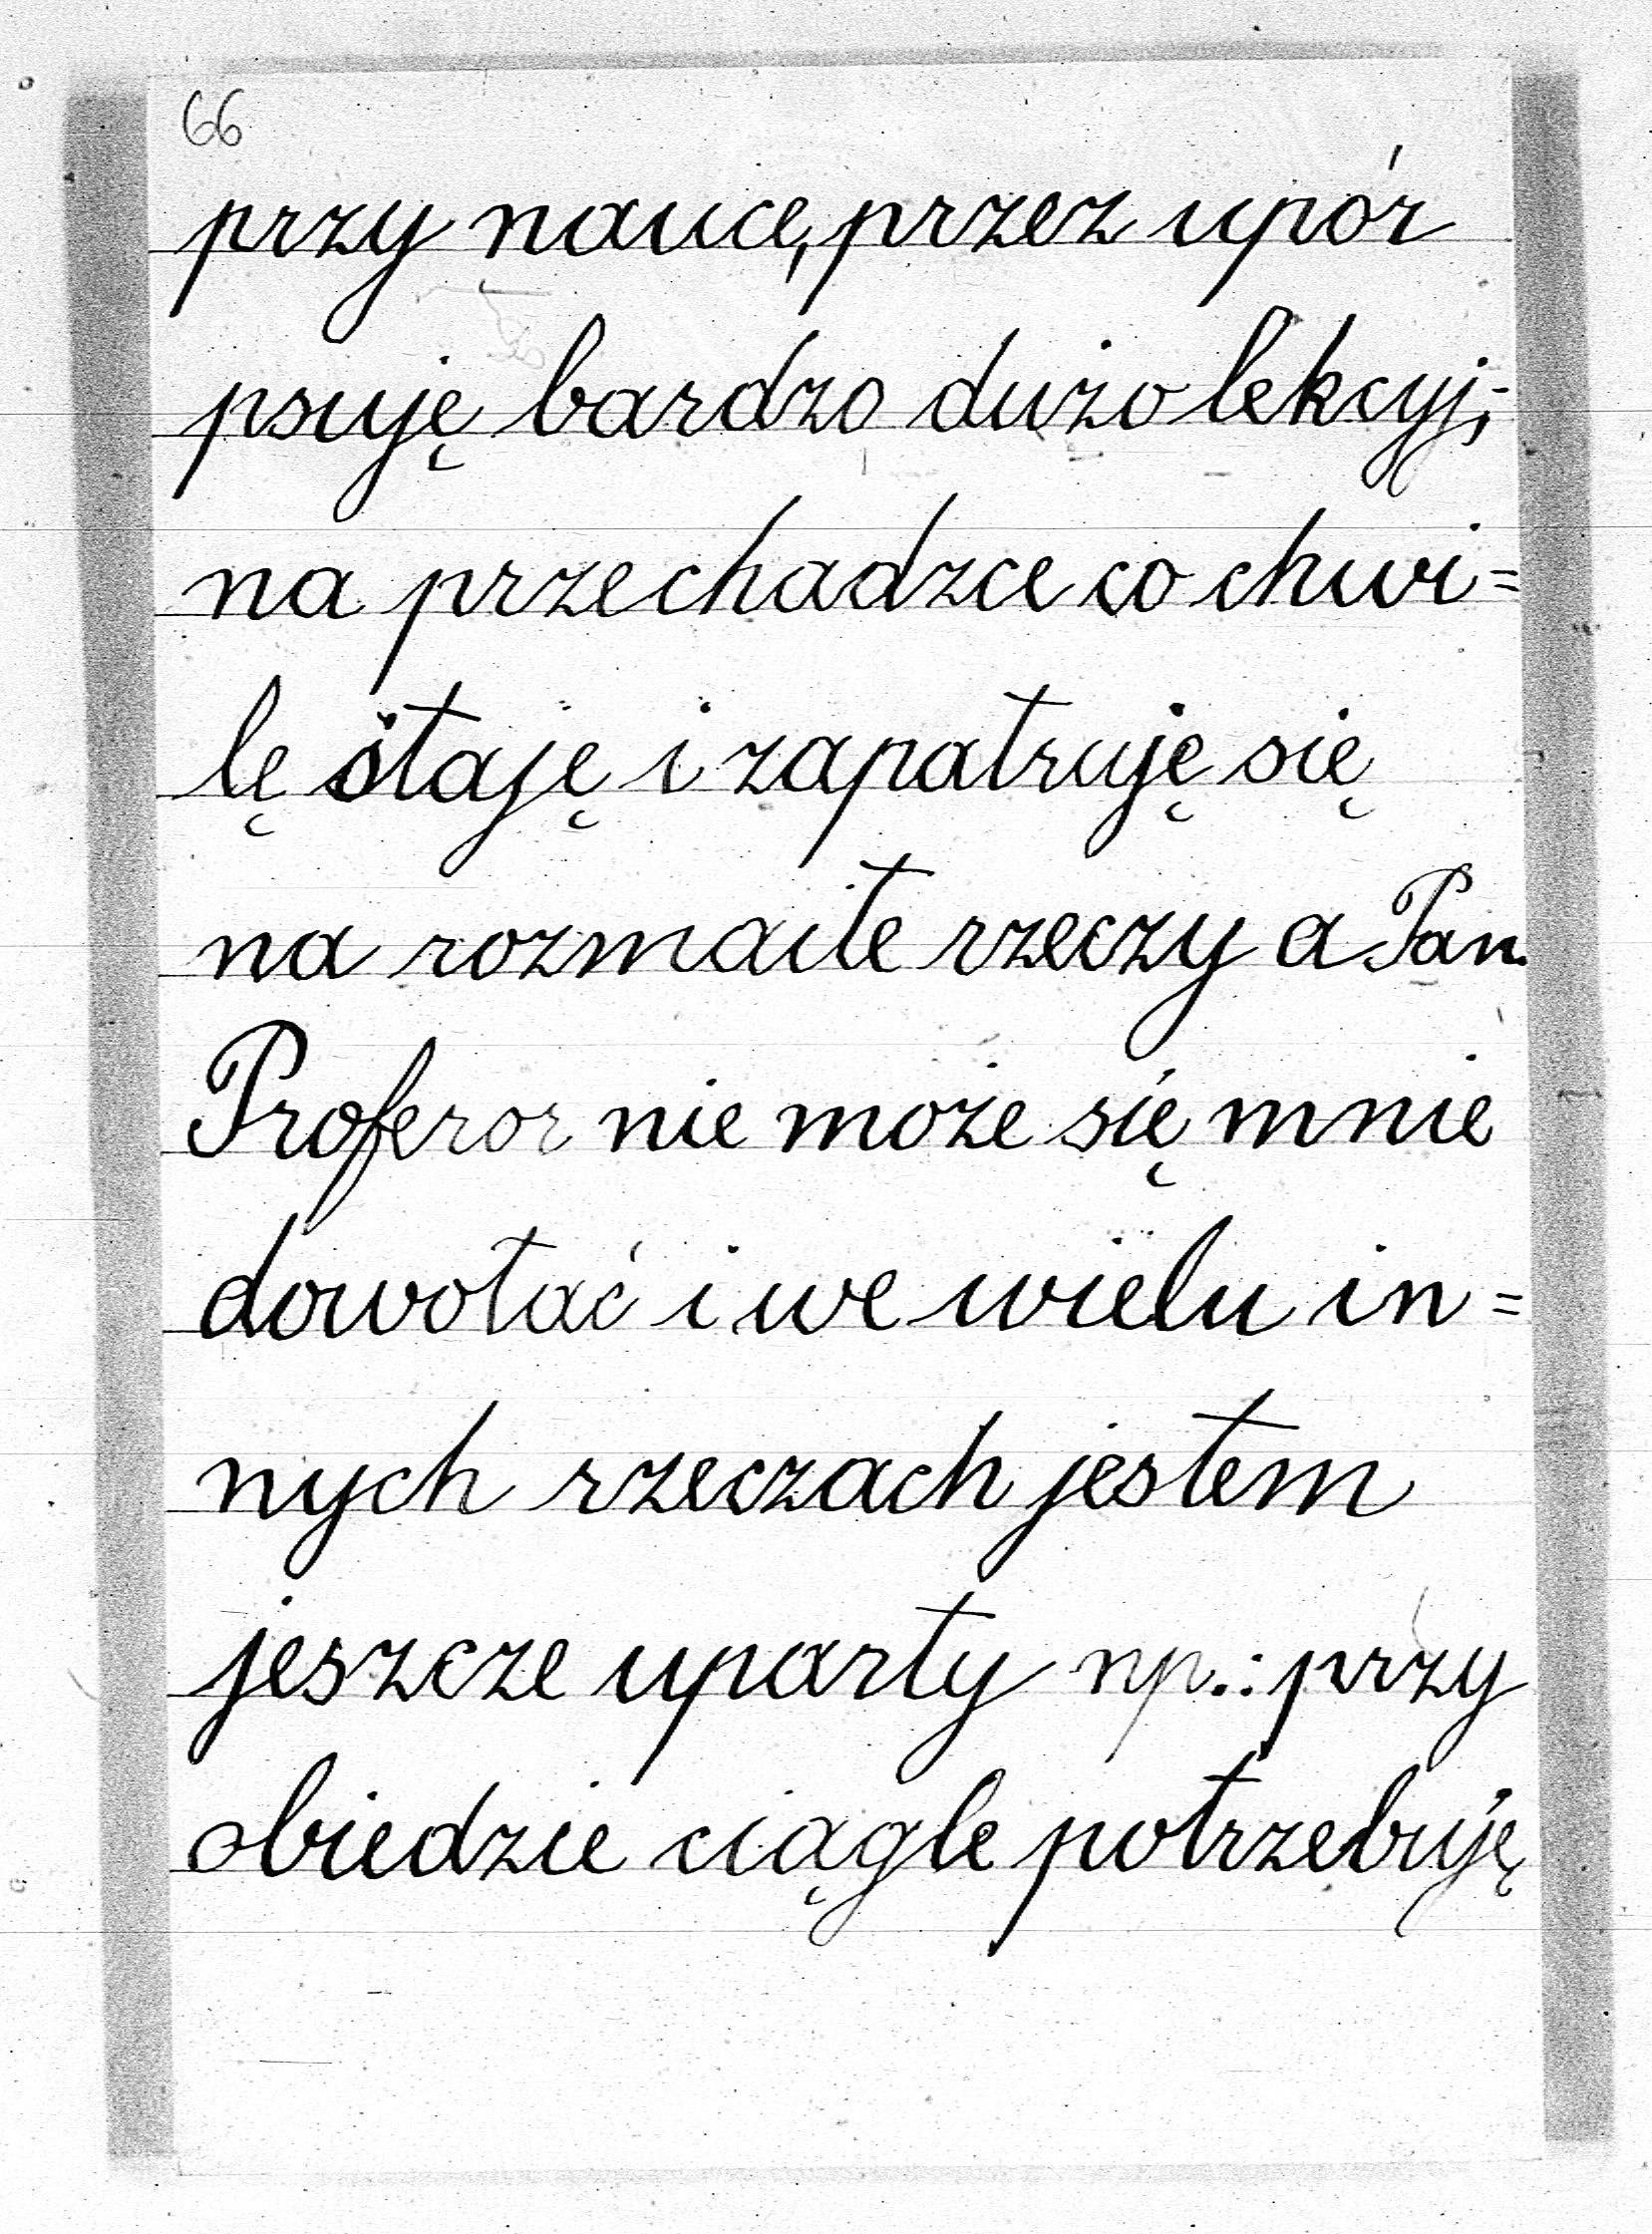 66
przy nauce, przez upór
psuję bardzo dużo lekcyj;
na przechadzce co chwi=
lę staję i zapatruję się
na rozmaite rzeczy a Pan
Profesor nie może się mnie
dowołać i we wielu in=
nych rzeczach jestem
jeszcze uparty np.: przy
obiedzie ciągle potrzebuję